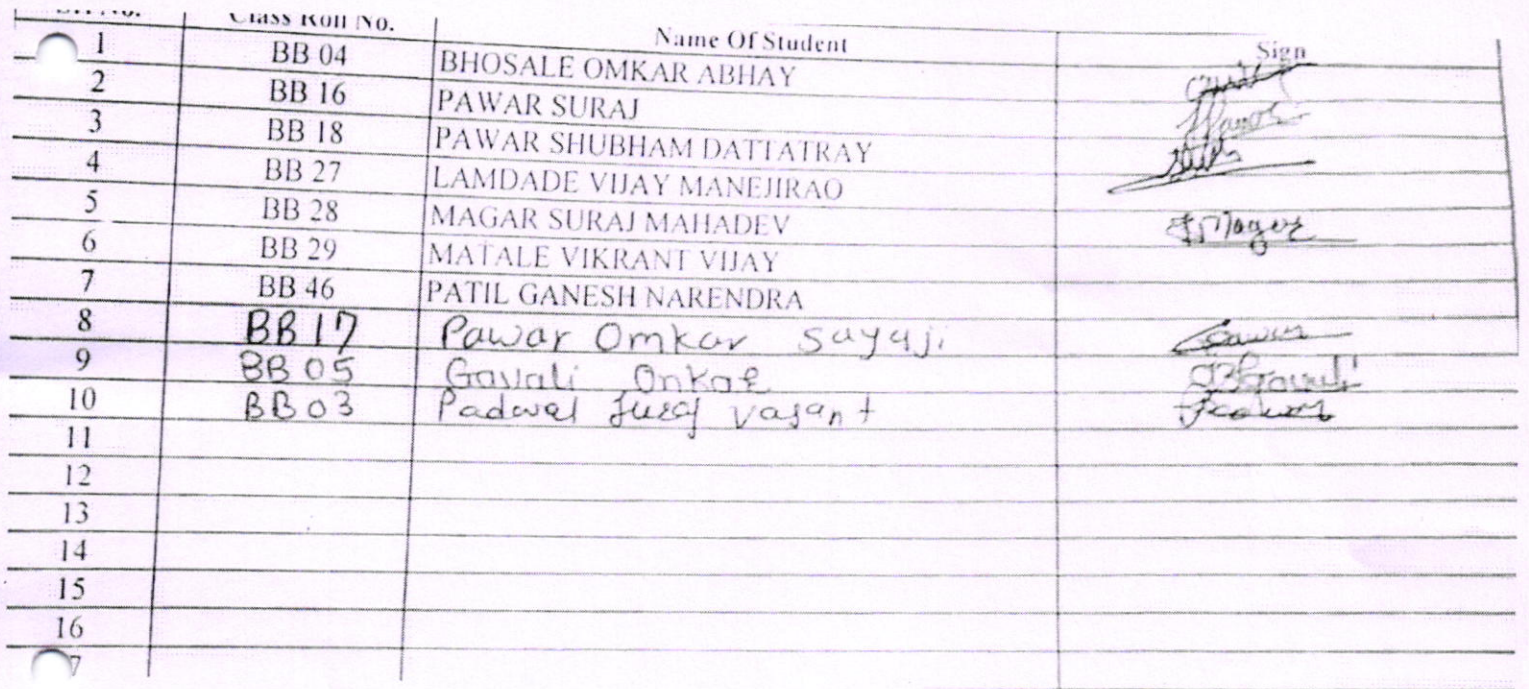 Class Roll No. Name Of Student Sign
1 BB 04 BHOSALE OMKAR ABHAY
2 BB 16 PAWAR SURAJ
3 BB 18 PAWAR SHUBHAM DATTATRAY
4 BB 27 LAMDADE VIJAY MANEJIRAO
5 BB 28 MAGAR SURAJ MAHADEV
6 BB 29 MATALE VIKRANT VIJAY
7 BB 46 PATIL GANESH NARENDRA
8 BB 17 Pawar Omkar Sayaji
9 BB 05 Gavali Onkar
10 BB 03 Padwal Suraj Vasant
11
12
13
14
15
16